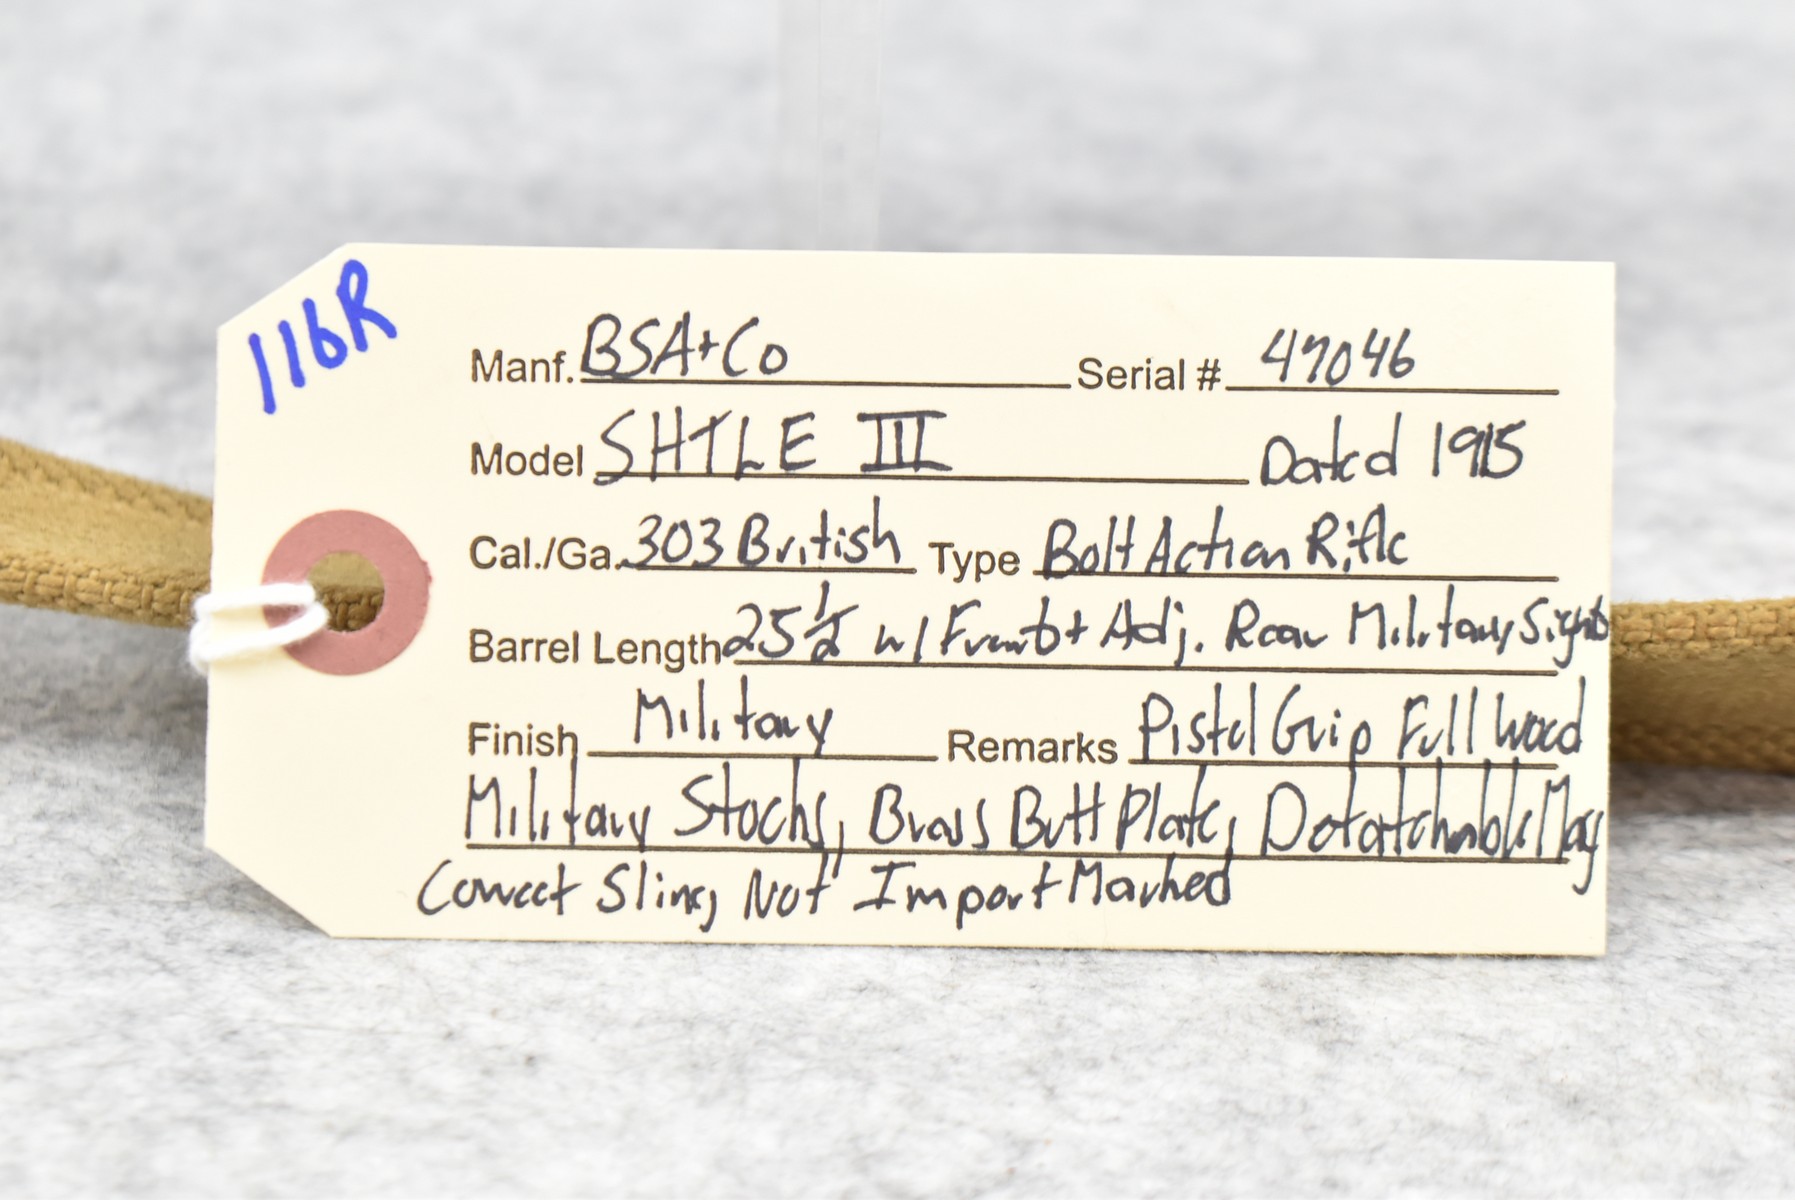 116R
Manf. BSA+Co Serial # 47046
Model SHTLE III Dated 1915
Cal./Ga. .303 British Type Bolt Action Rifle
Barrel Length 25 1/2 w/ Front + Adj. Rear Military Sights
Finish Military Remarks Pistol Grip Full Wood
Military Stocks, Brass Butt Plate, Detatchable Mag
Correct Sling, Not Import Marked